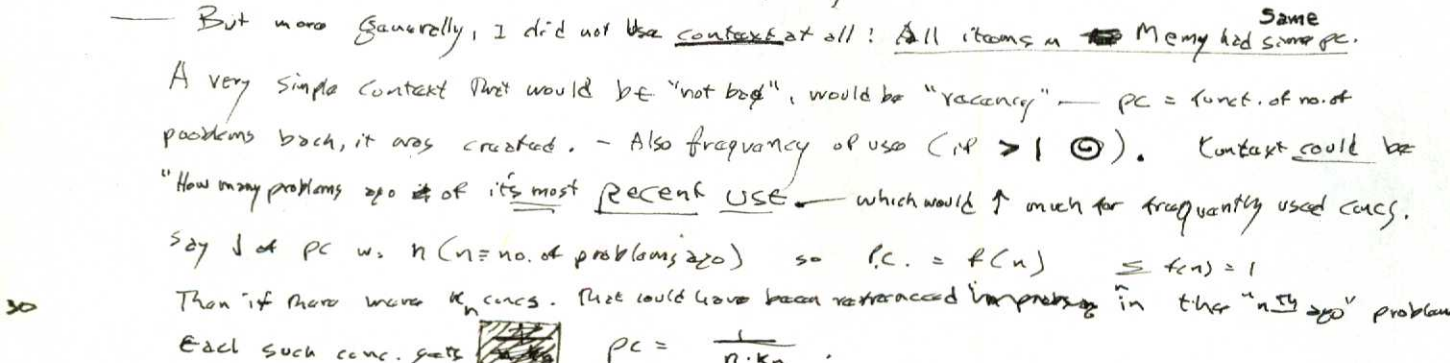 — But more generally, I did not use context at all! All items in Memy had same pc.
Same
A very simple context that would be "not bad", would be "recency" — pc = funct. of no. of
problems back, it was created. - Also frequency of use (if > 1 ). Context could be
"How many problems ago of it's most recent use — which would ↑ much for frequently used concs.
Say ↓ of pc w. n (n ≡ no. of problems ago) so P.C. = f(n) Σ f(n) = 1
n
30 Then if there were Kn concs. that could have been referenced in the "nth ago" problem
Each such conc. gets pc = 1 / n·Kn .